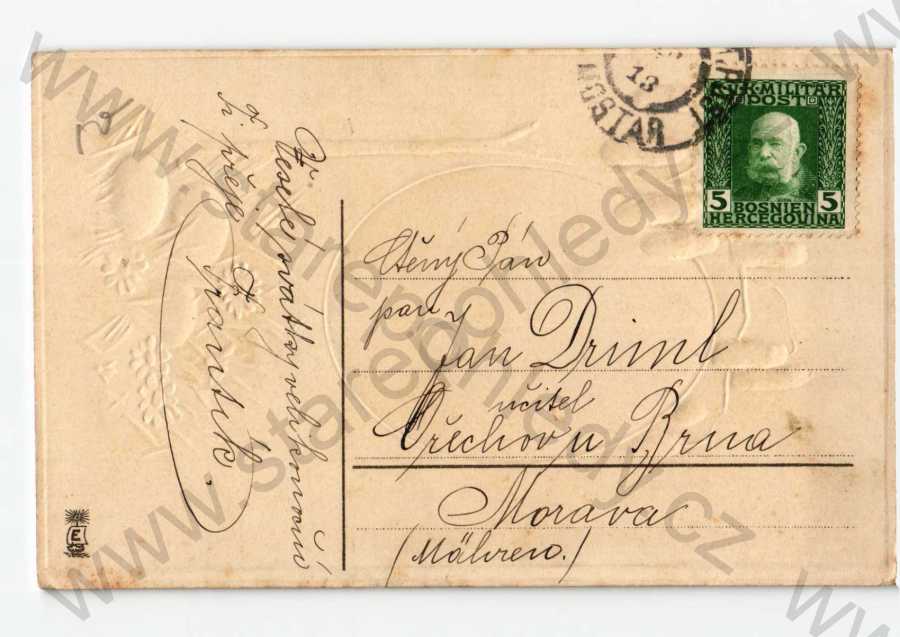 Veselé svátky velikonoční
Ti přeje
Frantík.
13
MOSTAR
K.u.K. MILITÄR
POST
5 BOSNIEN 5
HERCEGOVINA
Ctěný Pán
pan
Jan Driml
učitel
Ořechov u Brna
Morava
(Mähren.)
E
www.starepohledy.cz